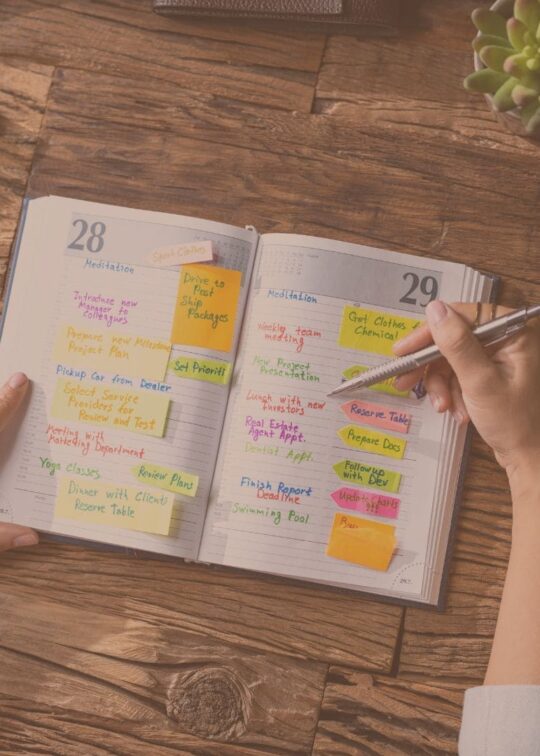 28
Sport Clothes
Meditation
Drive to
Post
Ship
Packages
Introduce new
Manager to
Colleagues
Prepare new Milestone
Project Plan
Set Prioriti
Pickup Car from Dealer
Select Service
Providers for
Review and Test
Meeting with
Marketing Department
Yoga Classes
Review Plans
Dinner with Clients
Reserve Table
29
Meditation
Get Clothes
Chemical
Weekly team
meeting
New Project
Presentation
Lunch with new
investors
Reserve Table
Real Estate
Agent Appt.
Prepare Docs
Dentist Appt.
Followup
with Dev
Finish Report
Deadline
Swimming Pool